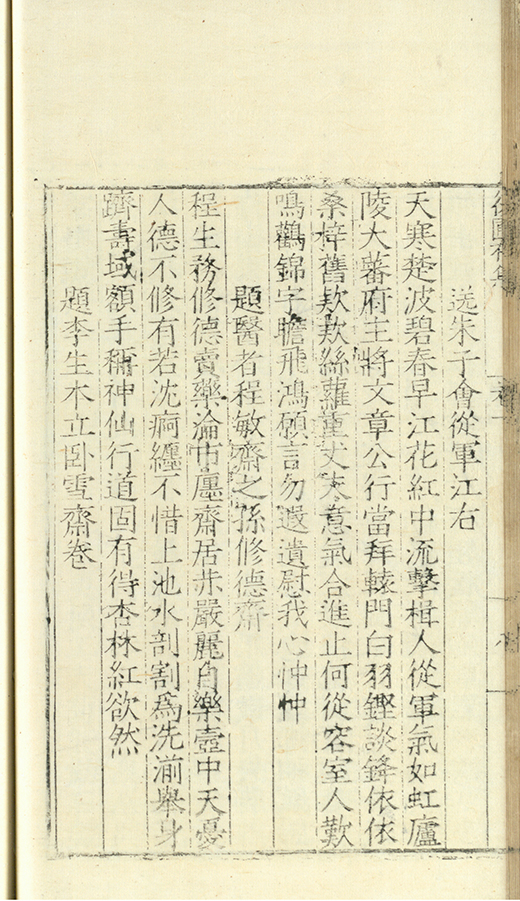 送朱子會從軍江右
天寒楚波碧春早江花紅中流擊楫人從軍氣如虹廬
陵大蕃府主將文章公行當拜轅門白羽鏗談鋒依依
桑梓舊欵欵絲蘿重丈夫意氣合進止何從容室人歎
鳴鸛錦字瞻飛鴻願言勿遐遺慰我心忡忡
題醫者程敏齋之孫修德齋
程生務修德賣藥淪市廛齋居非嚴麗自樂壺中天憂
人德不修有若沈痾纏不惜上池水剖割為洗湔舉身
躋壽域額手稱神仙行道固有得杏林紅欲然
題李生木立卧雪齋卷